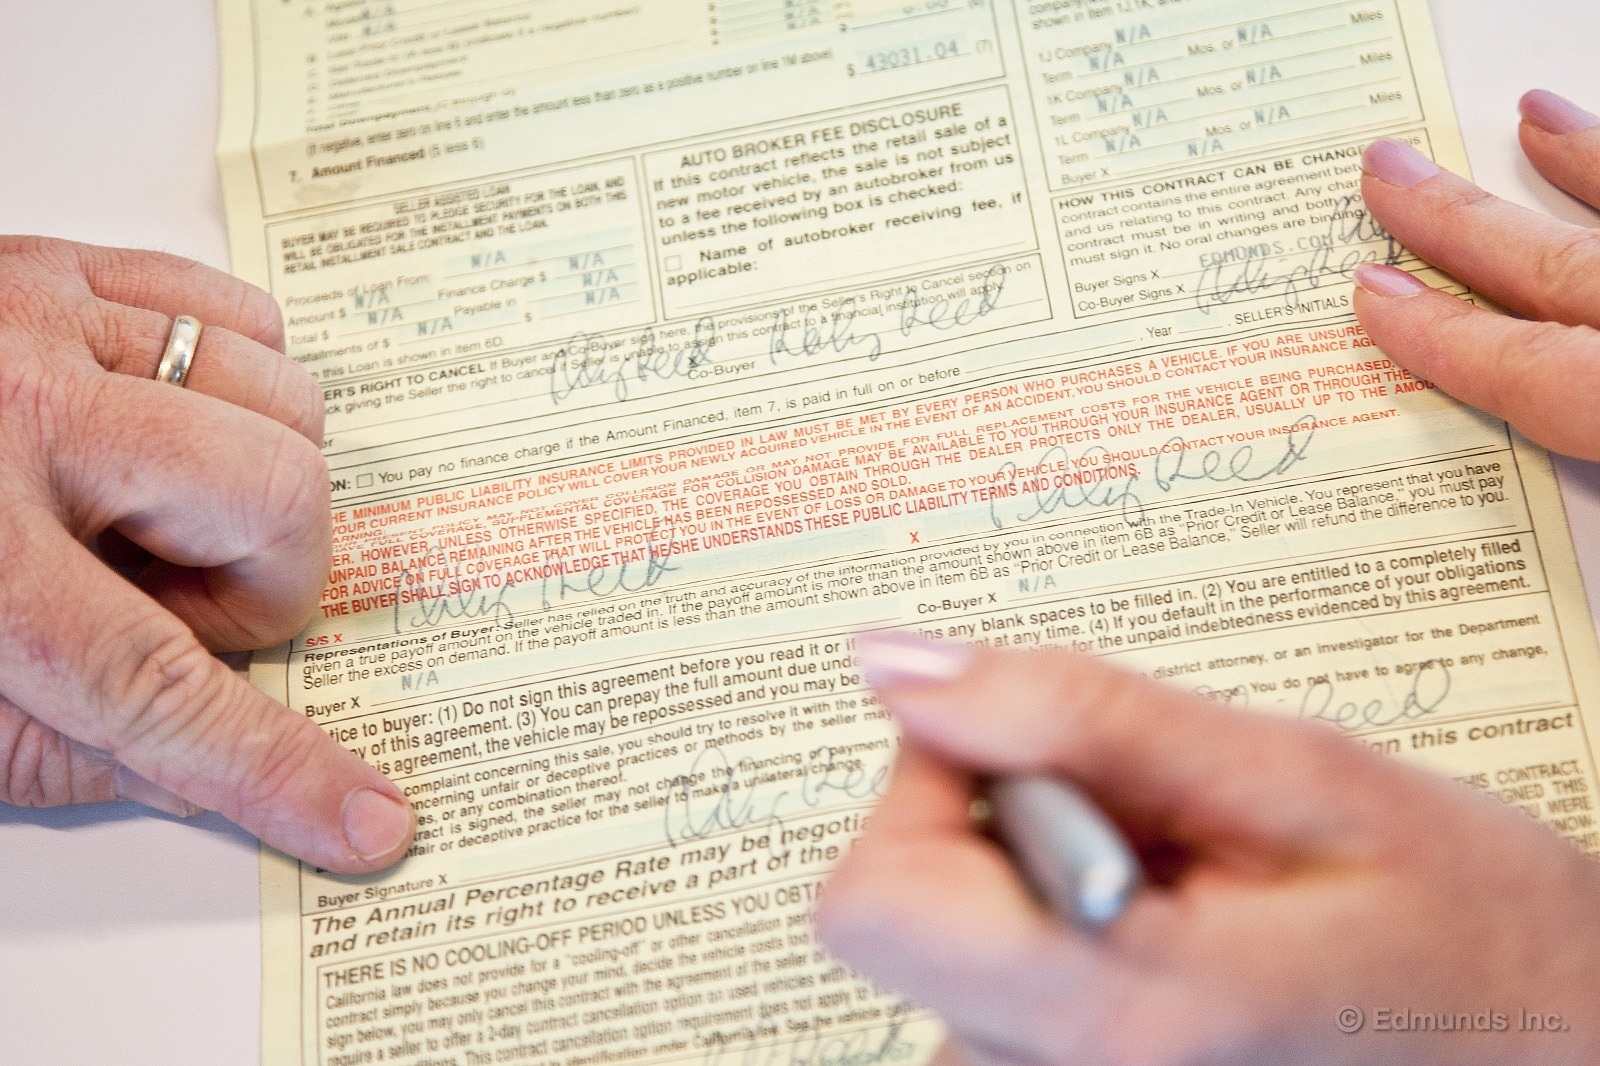 N/A
N/A
$ 43031.04 (7)
(If negative, enter zero on line 6 and enter the amount less than zero as a positive number on line 1M above)
7. Amount Financed (5 less 6)
SELLER ASSISTED LOAN
BUYER MAY BE REQUIRED TO PLEDGE SECURITY FOR THE LOAN, AND
WILL BE OBLIGATED FOR THE INSTALLMENT PAYMENTS ON BOTH THIS
RETAIL INSTALLMENT SALE CONTRACT AND THE LOAN.
Proceeds of Loan From: N/A
Amount $ N/A Finance Charge $ N/A
Total $ N/A Payable in N/A
installments of $ N/A $ N/A
this Loan is shown in item 6D.
AUTO BROKER FEE DISCLOSURE
If this contract reflects the retail sale of a
new motor vehicle, the sale is not subject
to a fee received by an autobroker from us
unless the following box is checked:
Name of autobroker receiving fee, if
applicable:
shown in item 1J, 1K, and
1J Company N/A Miles
Term N/A Mos. or N/A
1K Company N/A Miles
Term N/A Mos. or N/A
1L Company N/A Miles
Term N/A Mos. or N/A
Buyer X N/A
HOW THIS CONTRACT CAN BE CHANGE This
contract contains the entire agreement bet
and us relating to this contract. Any chan
contract must be in writing and both
must sign it. No oral changes are binding.
EDMUNDS.COM
Buyer Signs X
Co-Buyer Signs X
ER'S RIGHT TO CANCEL If Buyer and Co-Buyer sign here, the provisions of the Seller's Right to Cancel section on
ck giving the Seller the right to cancel if Seller is unable to assign this contract to a financial institution will apply.
Co-Buyer X
ON: You pay no finance charge if the Amount Financed, item 7, is paid in full on or before , Year . SELLER'S INITIALS
HE MINIMUM PUBLIC LIABILITY INSURANCE LIMITS PROVIDED IN LAW MUST BE MET BY EVERY PERSON WHO PURCHASES A VEHICLE. IF YOU ARE UNSURE
YOUR CURRENT INSURANCE POLICY WILL COVER YOUR NEWLY ACQUIRED VEHICLE IN THE EVENT OF AN ACCIDENT, YOU SHOULD CONTACT YOUR INSURANCE AG
POLICY MAY NOT COVER COLLISION DAMAGE OR MAY NOT PROVIDE FOR FULL REPLACEMENT COSTS FOR THE VEHICLE BEING PURCHASED.
SUPPLEMENTAL COVERAGE FOR COLLISION DAMAGE MAY BE AVAILABLE TO YOU THROUGH YOUR INSURANCE AGENT OR THROUGH THE
ER. HOWEVER, UNLESS OTHERWISE SPECIFIED, THE COVERAGE YOU OBTAIN THROUGH THE DEALER PROTECTS ONLY THE DEALER, USUALLY UP TO THE AMOU
UNPAID BALANCE REMAINING AFTER THE VEHICLE HAS BEEN REPOSSESSED AND SOLD.
FOR ADVICE ON FULL COVERAGE THAT WILL PROTECT YOU IN THE EVENT OF LOSS OR DAMAGE TO YOUR VEHICLE, YOU SHOULD CONTACT YOUR INSURANCE AGENT.
THE BUYER SHALL SIGN TO ACKNOWLEDGE THAT HE/SHE UNDERSTANDS THESE PUBLIC LIABILITY TERMS AND CONDITIONS.
S/S X X
Representations of Buyer: Seller has relied on the truth and accuracy of the information provided by you in connection with the Trade-In Vehicle. You represent that you have
given a true payoff amount on the vehicle traded in. If the payoff amount is more than the amount shown above in item 6B as "Prior Credit or Lease Balance," you must pay
Seller the excess on demand. If the payoff amount is less than the amount shown above in item 6B as "Prior Credit or Lease Balance," Seller will refund the difference to you.
Buyer X N/A Co-Buyer X N/A
tice to buyer: (1) Do not sign this agreement before you read it or if ins any blank spaces to be filled in. (2) You are entitled to a completely filled
y of this agreement. (3) You can prepay the full amount due unde nt at any time. (4) If you default in the performance of your obligations
is agreement, the vehicle may be repossessed and you may be for the unpaid indebtedness evidenced by this agreement.
complaint concerning this sale, you should try to resolve it with the sel
ncerning unfair or deceptive practices or methods by the seller may district attorney, or an investigator for the Department
es, or any combination thereof.
tract is signed, the seller may not change the financing or payment You do not have to agree to any change,
nfair or deceptive practice for the seller to make a unilateral change.
Buyer Signature X
The Annual Percentage Rate may be negotia gn this contract
and retain its right to receive a part of the
THERE IS NO COOLING-OFF PERIOD UNLESS YOU OBTA
California law does not provide for a "cooling-off" or other cancellation peri
contract simply because you change your mind, decide the vehicle costs too
sign below, you may only cancel this contract with the agreement of the seller or
require a seller to offer a 2-day contract cancellation option on used vehicles with a
This contract cancellation option requirement does not apply to
HIS CONTRACT.
GNED THIS
U WERE
© Edmunds Inc.